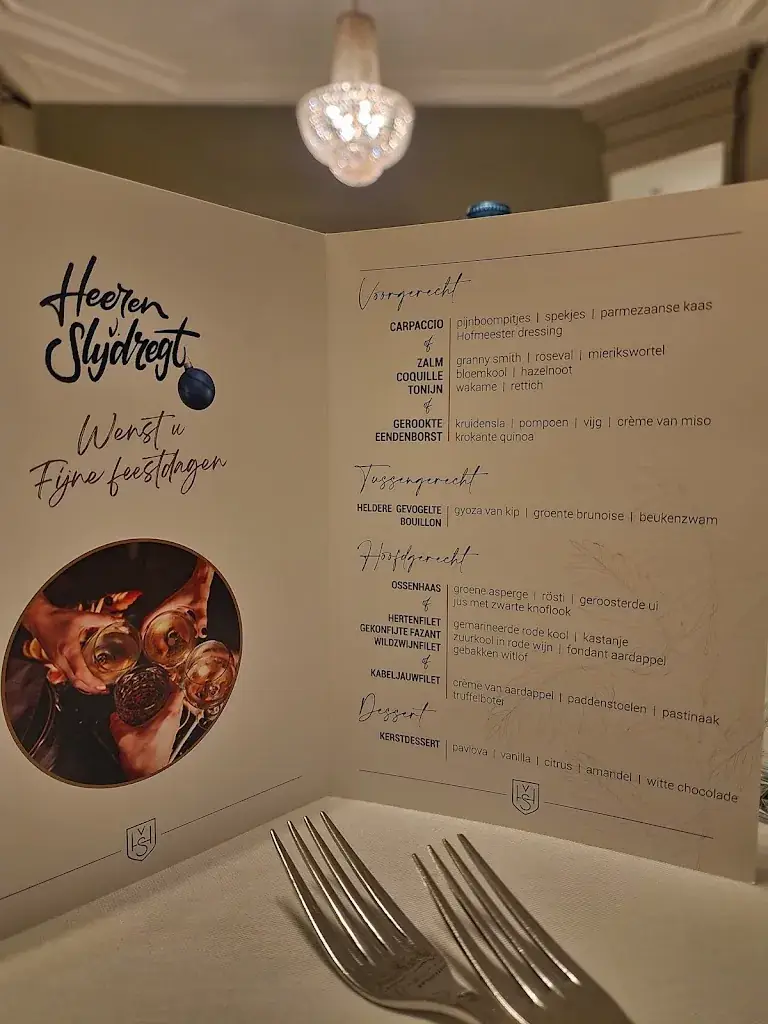 Heeren
v
Slydregt
Wenst u
Fijne feestdagen
VHS
Voorgerecht
CARPACCIO pijnboompitjes | spekjes | parmezaanse kaas
Hofmeester dressing
of
ZALM granny smith | roseval | mierikswortel
COQUILLE bloemkool | hazelnoot
TONIJN wakame | rettich
of
GEROOKTE kruidensla | pompoen | vijg | crème van miso
EENDENBORST krokante quinoa
Tussengerecht
HELDERE GEVOGELTE gyoza van kip | groente brunoise | beukenzwam
BOUILLON
Hoofdgerecht
OSSENHAAS groene asperge | rösti | geroosterde ui
jus met zwarte knoflook
of
HERTENFILET gemarineerde rode kool | kastanje
GEKONFIJTE FAZANT zuurkool in rode wijn | fondant aardappel
WILDZWIJNFILET gebakken witlof
of
KABELJAUWFILET crème van aardappel | paddenstoelen | pastinaak
truffelboter
Dessert
KERSTDESSERT pavlova | vanilla | citrus | amandel | witte chocolade
VHS